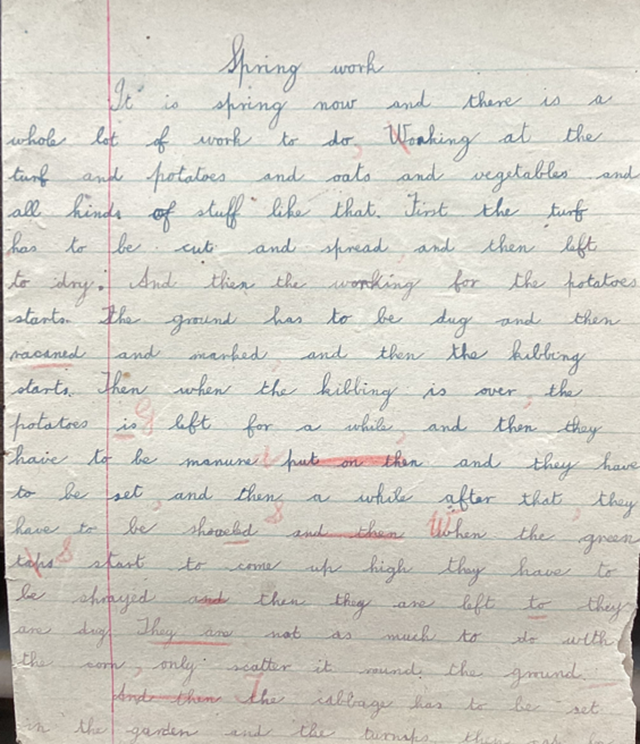 Spring work
It is spring now and there is a
whole lot of work to do, Working at the
turf and potatoes and oats and vegetables and
all kinds of stuff like that. First the turf
has to be cut and spread and then left
to dry. And then the working for the potatoes
starts. The ground has to be dug and then
racaned and marked, and then the kibbing
starts. Then when the kibbing is over, the
potatoes is left for a while, and then they
have to be manure put on then and they have
to be set, and then a while after that, they
have to be shoveled and then When the green
tops start to come up high they have to
be sprayed and then they are left to they
are dug. They are not as much to do with
the corn, only scatter it round the ground.
And then the cabbage has to be set
in the garden and the turnips then